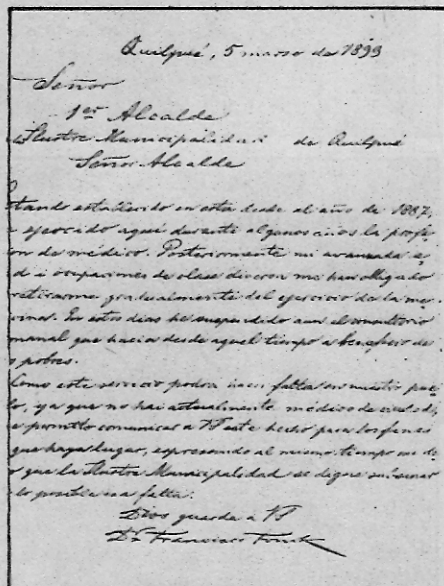 Quilpué, 5 marzo de 1893
Señor
1er Alcalde
Ilustre Municipalidad de Quilpué
Señor Alcalde
stando establecido en esta desde el año de 1887,
ejercido aquí durante algunos años la profe
ion de médico. Posteriormente mi avanzada e
d i ocupaciones de clase diversa me han obligado
retirarme gradualmente del ejercicio de la me
icina. En estos días he suspendido aun el consultorio
manal que hacia desde aquel tiempo a beneficio de
s pobres.
Como este servicio podra hacer falta en nuestro pue
lo, ya que no hai actualmente médico de ciudad,
e permito comunicar a VS este hecho para los fines
que haya lugar, espresando al mismo tiempo mi de
o que la Ilustre Municipalidad se digne subsanar
lo posible esa falta.
Dios guarde a VS
Dr. Francisco Fonck